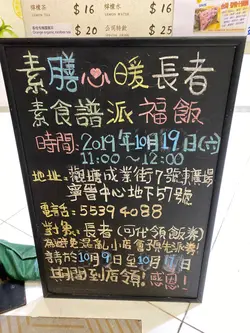 $16 $16
$20 $25
素膳心暖長者
素食譜派福飯
時間：2019年10月19日(六)
11:00～12:00
地址：觀塘成業街7號東廣場
寧晉中心地下57號
電話：5539 4088
對象：長者(可代領飯券)
為避免混亂小店會予先派券！
請於10月9日至10月17日
期間到店領！感恩！